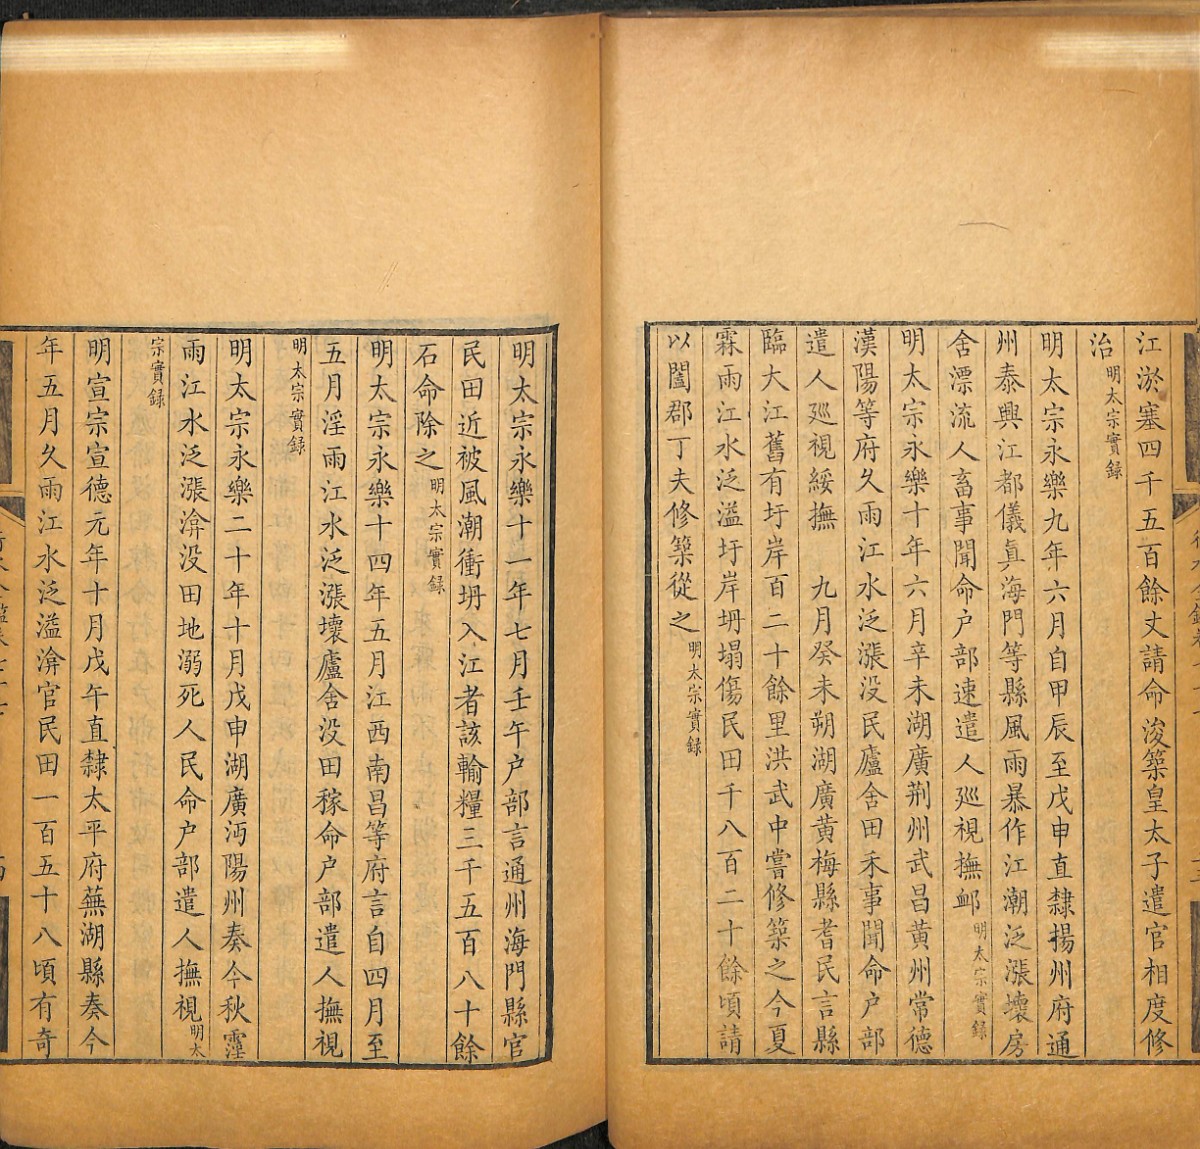 江淤塞四千五百餘丈請命浚築皇太子遣官相度修
治明太宗實録
明太宗永樂九年六月自甲辰至戊申直隸揚州府通
州泰興江都儀真海門等縣風雨暴作江潮泛漲壞房
舍漂流人畜事聞命户部速遣人廵視撫䘏明太宗實録
明太宗永樂十年六月辛未湖廣荆州武昌黄州常德
漢陽等府久雨江水泛漲没民廬舍田禾事聞命户部
遣人廵視綏撫　九月癸未朔湖廣黄梅縣耆民言縣
臨大江舊有圩岸百二十餘里洪武中嘗修築之今夏
霖雨江水泛溢圩岸坍塌傷民田千八百二十餘頃請
以闔郡丁夫修築從之明太宗實録
明太宗永樂十一年七月壬午户部言通州海門縣官
民田近被風潮衝坍入江者該輸糧三千五百八十餘
石命除之明太宗實録
明太宗永樂十四年五月江西南昌等府言自四月至
五月淫雨江水泛漲壞廬舍没田稼命户部遣人撫視
明太宗實録
明太宗永樂二十年十月戊申湖廣沔陽州奏今秋霪
雨江水泛漲渰没田地溺死人民命户部遣人撫視明太
宗實録
明宣宗宣德元年十月戊午直隸太平府蕪湖縣奏今
年五月久雨江水泛溢渰官民田一百五十八頃有奇